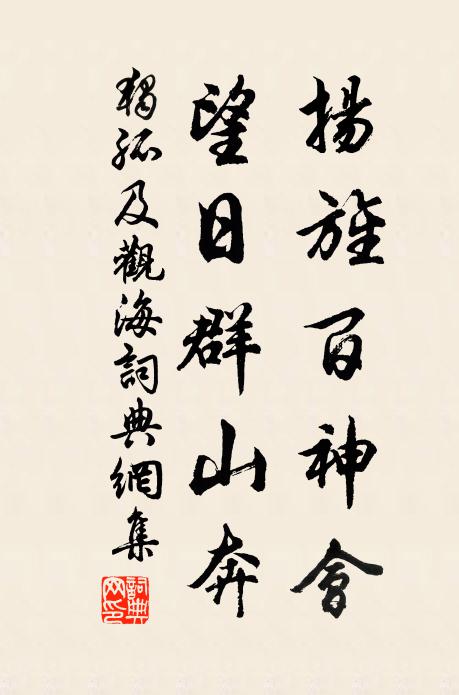 揚旌百神會
望日群山奔
獨孤及觀海詞典網集
詞典網印